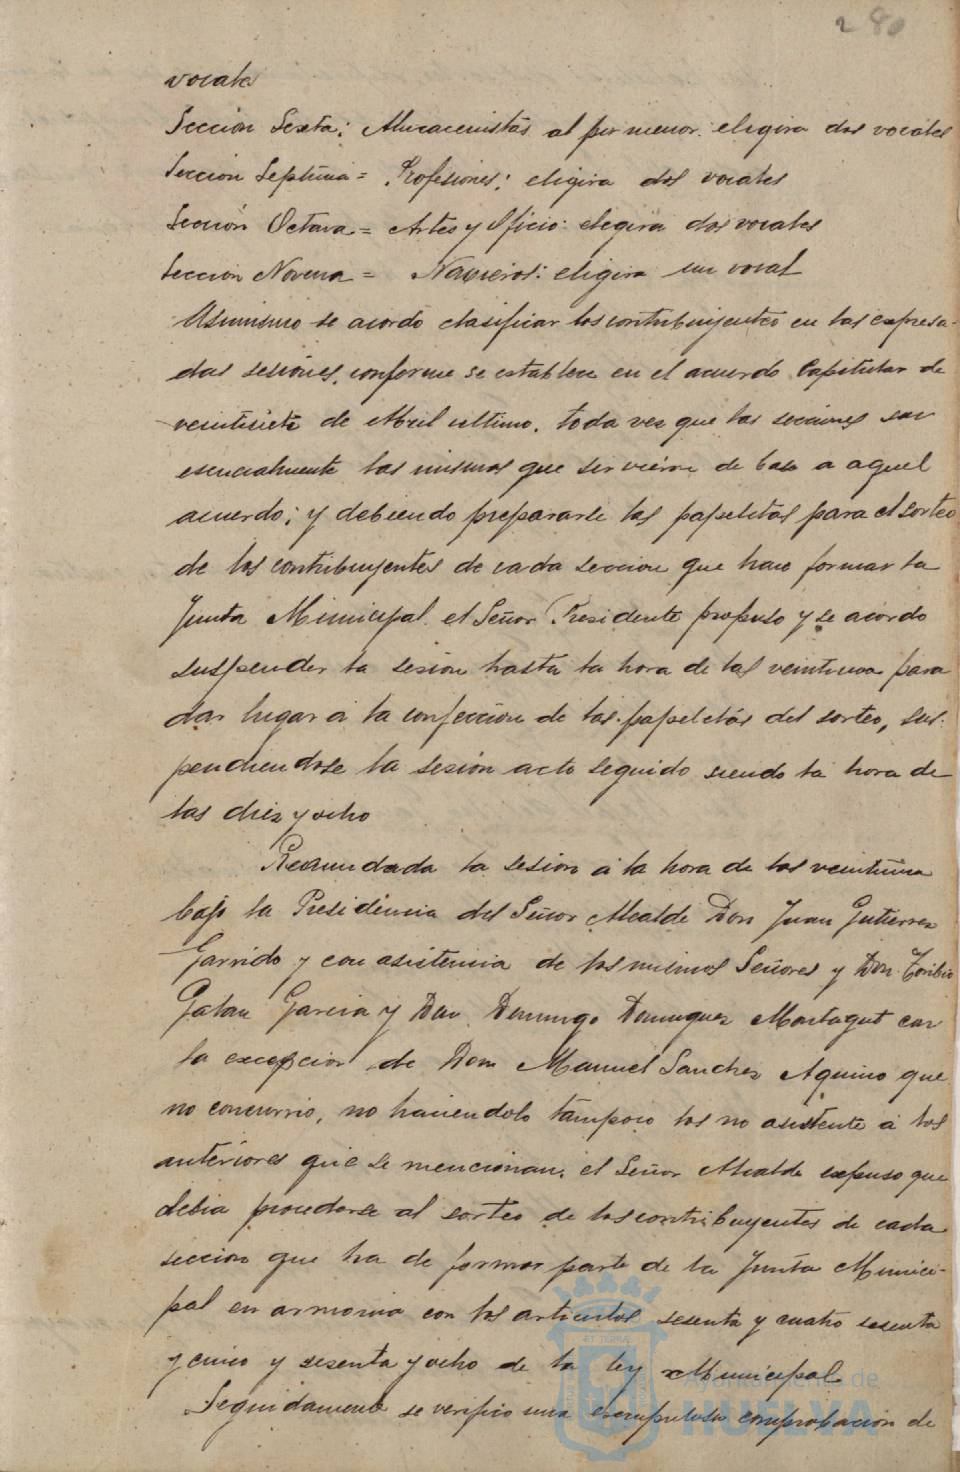 280
vocales
Sección Sexta: Almacenistas al por menor: eligira dos vocales
Sección Septima = Profesiones: eligira dos vocales
Sección Octava = Artes y Oficio: elegira dos vocales
Sección Novena = Navieros: eligira un vocal
Asimismo se acordo clasificar los contribuyentes en las expresa-
das sesiones, conforme se establece en el acuerdo Capitular de
veintisiete de Abril ultimo, toda vez que las secciones son
esencialmente las mismas que sirvieron de base a aquel
acuerdo; y debiendo prepararse las papeletas para el sorteo
de los contribuyentes de cada seccion que han formar la
Junta Municipal el Señor Presidente propuso y se acordo
suspender la sesion hasta la hora de las veintiuna para
dar lugar á la confeccion de las papeletas del sorteo, sus-
pendiendose la sesión acto seguido siendo la hora de
las diez y ocho
Reanudada la sesion á la hora de las veintiuna
bajo la Presidencia del Señor Alcalde Don Juan Gutierrez
Garrido y con asistencia de los mismos Señores y Don Toribio
Galan Garcia y Don Domingo Dominguez Mortagut con
la excepcion de Don Manuel Sanchez Aquino que
no concurrio, no haciendolo tampoco los no asistente á los
anteriores que se mencionan, el Señor Alcalde expuso que
debia procederse al sorteo de los contribuyentes de cada
seccion que ha de formar parte de la Junta Munici-
pal en armonia con los articulos sesenta y cuatro sesenta
y cinco y sesenta y ocho de la ley Municipal
Seguidamente se verifico una escrupulosa comprobacion de
Ayuntamiento de
HUELVA